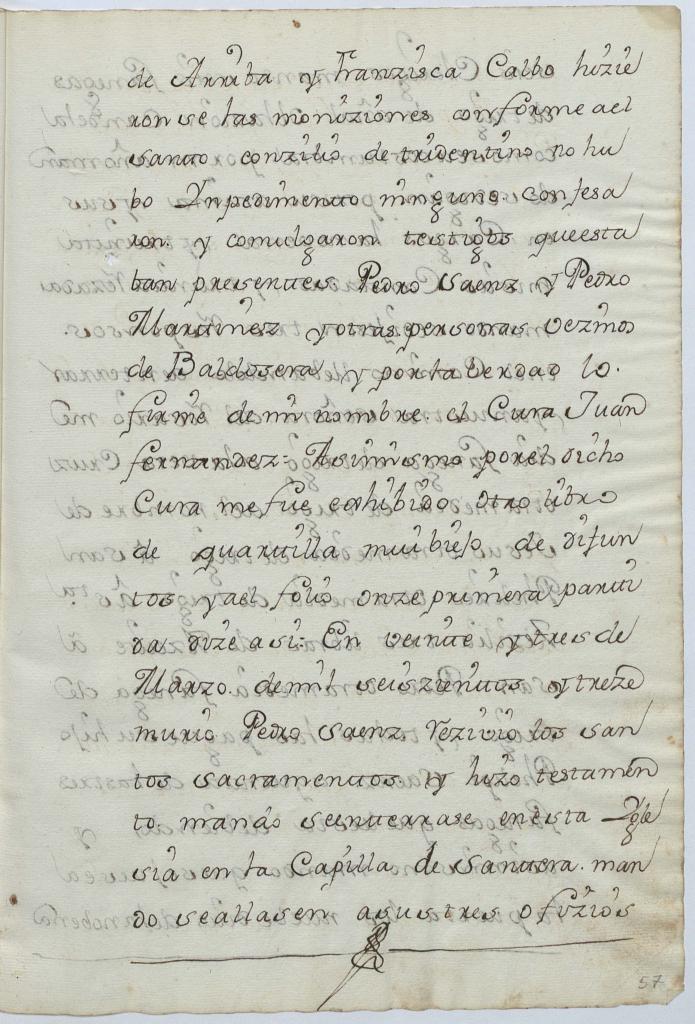 de Arriba y Franzisca Calbo hizie
ronse las moniziones conforme ael
santo conzilio de tridentino no hu
bo Ynpedimento ninguno confesa
ron y comulgaron testigos queesta
ban presentes Pedro Saenz y Pedro
Martinez yotras personas vezinos
de Baldosera y porla verdad lo
firme de mi nombre. el Cura Juan
fernandez= Asimismo porel dicho
Cura me fue eshibido otro libro
de quartilla mui biejo de difun
tos yael folio onze primera parti
da dize asi= En veinte ytres de
Marzo de mil seiszientos ytreze
murio Pedro Saenz Rezivio los san
tos sacramentos y hizo testamen
to. mando seenterrase enesta Ygle
sia en la Capilla de Santtera. man
do seallasen asus tres ofizios
57